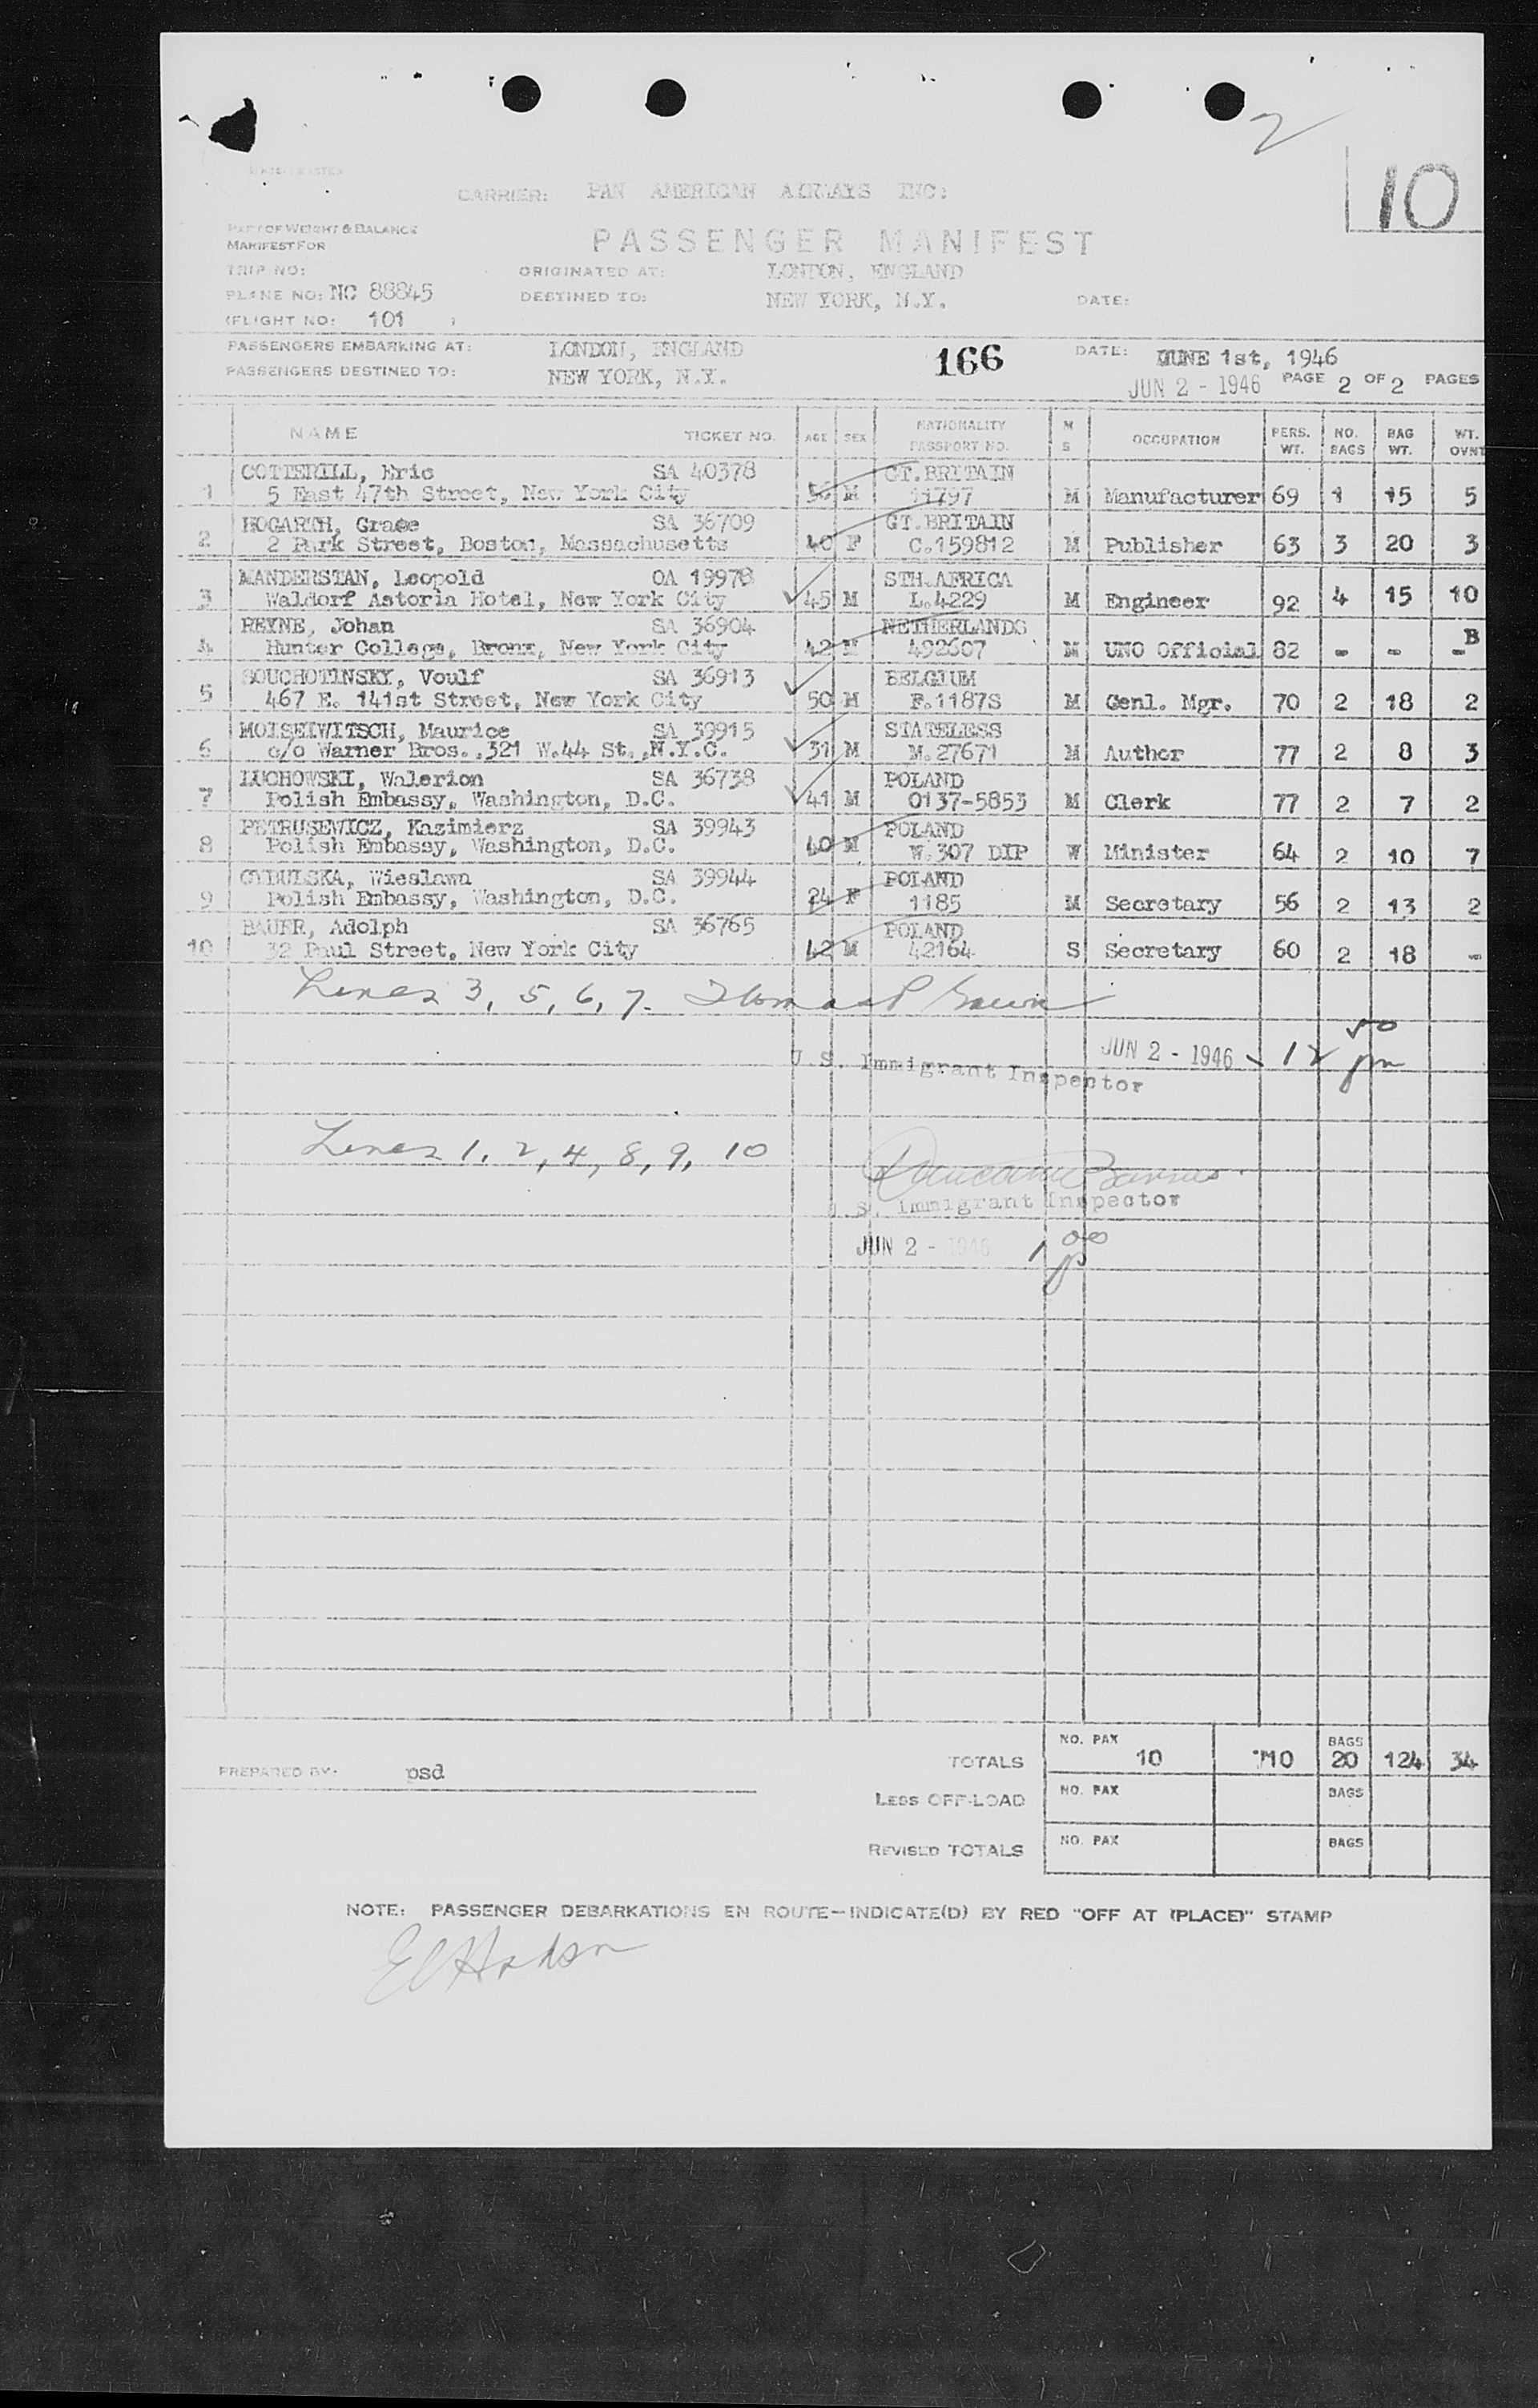 2
10
CARRIER: PAN AMERICAN AIRWAYS INC:
PART OF WEIGHT & BALANCE
MANIFEST FOR
PASSENGER MANIFEST
TRIP NO: ORIGINATED AT: LONDON, ENGLAND
PLANE NO: NC 88845 DESTINED TO: NEW YORK, N.Y. DATE:
(FLIGHT NO: 101 )
PASSENGERS EMBARKING AT: LONDON, ENGLAND 166 DATE: JUNE 1st, 1946
PASSENGERS DESTINED TO: NEW YORK, N.Y. JUN 2 - 1946 PAGE 2 OF 2 PAGES
NAME TICKET NO. AGE SEX NATIONALITY PASSPORT NO. M S OCCUPATION PERS. WT. NO. BAGS BAG WT. WT. OVNT
COTTERILL, Eric SA 40378 GT.BRITAIN
1 5 East 47th Street, New York City M 11797 M Manufacturer 69 1 15 5
HOGARTH, Grace SA 36709 GT.BRITAIN
2 2 Park Street, Boston, Massachusetts 40 F C.159812 M Publisher 63 3 20 3
MANDERSTAN, Leopold OA 19978 STH.AFRICA
3 Waldorf Astoria Hotel, New York City 45 M L.4229 M Engineer 92 4 15 10
REYNE, Johan SA 36904 NETHERLANDS
4 Hunter College, Bronx, New York City 42 M 492607 M UNO Official 82 - - - B
SOUCHOTINSKY, Voulf SA 36913 BELGIUM
5 467 E. 141st Street, New York City 50 M F.1187S M Genl. Mgr. 70 2 18 2
MOISEIWITSCH, Maurice SA 39915 STATELESS
6 c/o Warner Bros.,321 W.44 St.,N.Y.C. 31 M M.27671 M Author 77 2 8 3
LUCHOWSKI, Walerion SA 36738 POLAND
7 Polish Embassy, Washington, D.C. 41 M 0137-5853 M Clerk 77 2 7 2
PETRUSEWICZ, Kazimierz SA 39943 POLAND
8 Polish Embassy, Washington, D.C. 40 M W.307 DIP W Minister 64 2 10 7
CYBULSKA, Wieslawa SA 39944 POLAND
9 Polish Embassy, Washington, D.C. 24 F 1185 M Secretary 56 2 13 2
BAUER, Adolph SA 36765 POLAND
10 32 Paul Street, New York City 42 M 42164 S Secretary 60 2 18 -
Lines 3, 5, 6, 7. Thomas P
JUN 2 - 1946 12 50 pm
U.S. Immigrant Inspector
Lines 1, 2, 4, 8, 9, 10
U.S. Immigrant Inspector
JUN 2 - 1946 1 00 p
TOTALS NO. PAX 10 710 BAGS 20 124 34
PREPARED BY: psd
LESS OFF-LOAD NO. PAX BAGS
REVISED TOTALS NO. PAX BAGS
NOTE: PASSENGER DEBARKATIONS EN ROUTE-INDICATE(D) BY RED "OFF AT (PLACE)" STAMP